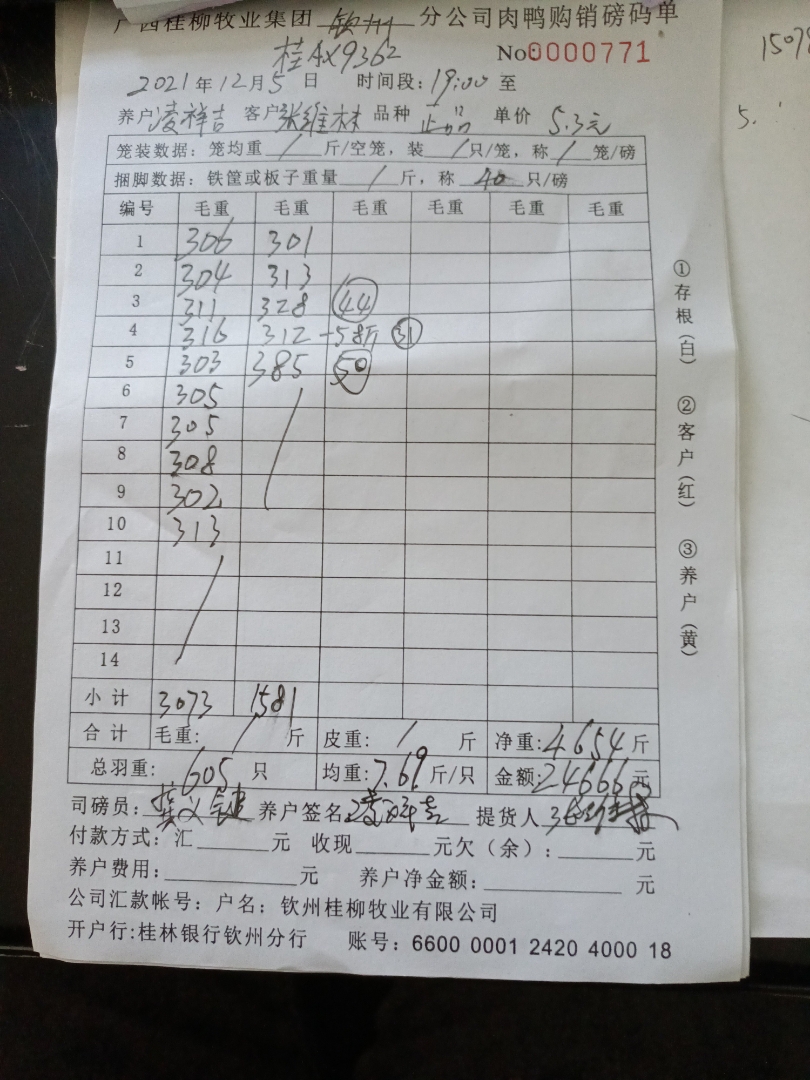 广西桂柳牧业集团 钦州 分公司肉鸭购销磅码单
桂AX9362 No 0000771
2021年12月5日 时间段：19:00至
养户凌祥吉 客户张维林 品种 正品 单价 5.3元
笼装数据：笼均重 / 斤/空笼，装 / 只/笼，称 / 笼/磅
捆脚数据：铁筐或板子重量 / 斤，称 40 只/磅
编号 毛重 毛重 毛重 毛重 毛重 毛重
1 306 301
2 304 313
3 311 328 44
4 316 312 -58斤 31
5 303 385 50
6 305
7 305
8 308
9 302
10 313
11
12
13
14
小计 3073 1581
合计 毛重： / 斤 皮重： / 斤 净重：4654斤
总羽重：605只 均重：7.69斤/只 金额：24666元
司磅员： 养户签名 凌祥吉 提货人
付款方式：汇 元 收现 元欠（余）： 元
养户费用： 元 养户净金额： 元
公司汇款帐号：户名：钦州桂柳牧业有限公司
开户行:桂林银行钦州分行 账号：6600 0001 2420 4000 18
①存根（白） ②客户（红） ③养户（黄）
1507
5.